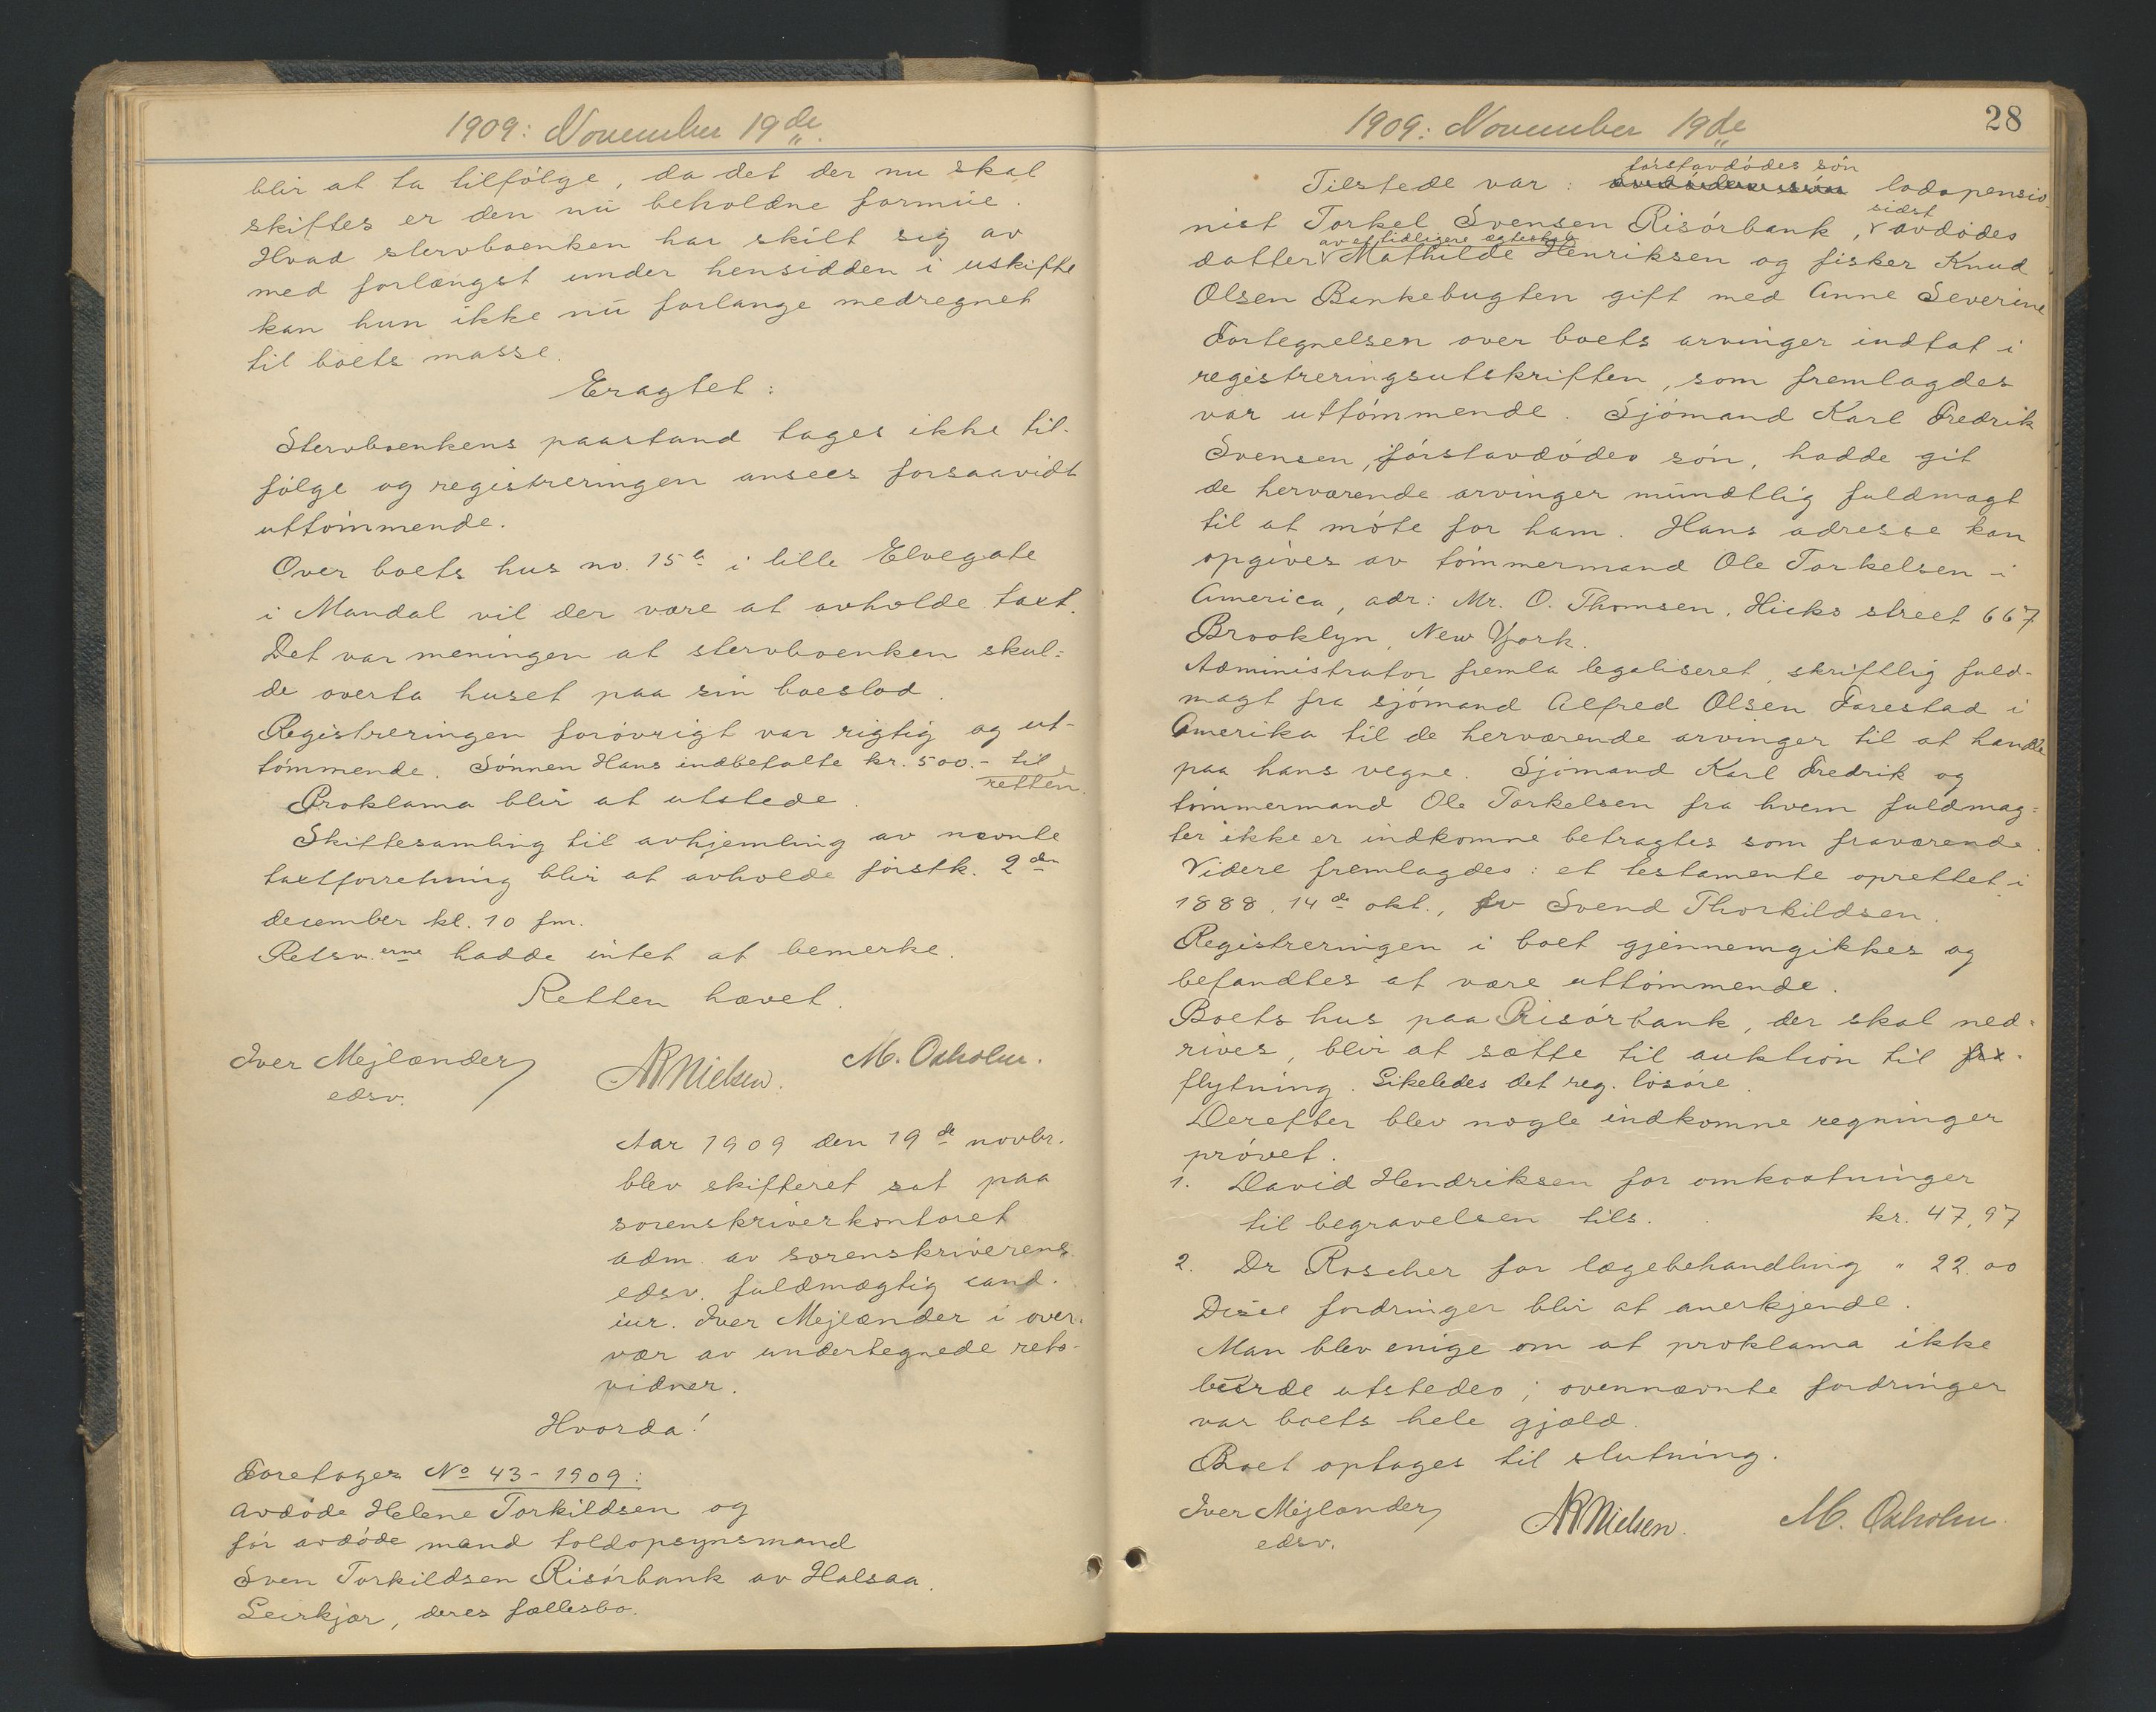 1909: November 19de.
blir at ta tilfölge, da det der nu skal
skiftes er den nu beholdne formue.
Hvad stervboenken har skilt seg av
med forlængst under hensidden i uskifte
kan hun ikke nu forlange medregnet
til boets masse.
Eragtet:
Stervboenkens paastand tages ikke til-
fölge og registreringen ansees forsaavidt
uttömmende.
Over boets hus no. 15a i lille Elvegate
i Mandal vil der være at avholde taxt.
Det var meningen at stervboenken skul=
de overta huset paa sin boeslod.
Registreringen forövrigt var rigtig og ut-
tömmende. Sönnen Hans indbetalte kr. 500.- til
retten.
Proklama blir at utstede.
Skiftesamling til avhjemling av nævnte
taxtforretning blir at avholde förstk. 2den
december kl. 10 fm.
Retsv.erne hadde intet at bemerke.
Retten hævet.
Iver Mejlænder
edsv.
NNielsen.
M. Oxholm.
Aar 1909 den 19de novbr.
blev skifteret sat paa
sorenskriverkontoret
adm. av sorenskriverens
edsv. fuldmægtig cand.
iur. Iver Mejlænder i over-
vær av undertegnede rets-
vidner.
Hvorda!
Foretoges No 43 - 1909:
Avdöde Helene Torkildsen og
för avdöde mand toldopsynsmand
Sven Torkildsen Risörbank av Halsaa.
Leirkjær, deres fællesbo.
1909: November 19de
28
förstavdödes sön
Tilstede var: avdödes sön lodspensio-
sidst
nist Torkel Svensen Risörbank, avdödes
av et tidligere ægteskab
datter Mathilde Henriksen og fisker Knud
Olsen Bankebugten gift med Anne Severine
Fortegnelsen over boets arvinger indtat i
registreringsutskriften, som fremlagdes
var uttömmende. Sjömand Karl Fredrik
Svensen, förstavdödes sön, hadde git
de herværende arvinger mundtlig fuldmagt
til at möte for ham. Hans adresse kan
opgives av tömmermand Ole Torkelsen i
America, adr: Mr. O. Thomsen, Hicks street 667
Brooklyn, New York.
Administrator fremla legaliseret, skriftlig fuld-
magt fra sjömand Alfred Olsen Farestad i
Amerika til de herværende arvinger til at handle
paa hans vegne. Sjömand Karl Fredrik og
tömmermand Ole Torkelsen fra hvem fuldmag=
ter ikke er indkomne betragtes som fraværende.
Videre fremlagdes: et testamente oprettet i
1888, 14de okt., av Svend Thorkildsen.
Registreringen i boet gjennemgikkes og
befandtes at være uttömmende.
Boets hus paa Risörbank, der skal ned=
rives, blir at sætte til auktion til for-
flytning. Likeledes det reg. lösöre.
Derefter blev nogle indkomne regninger
prövet.
1. David Hendriksen for omkostninger
til begravelsen tils. kr. 47,97
2. Dr Roscher for lægebehandling " 22.00
Disse fordringer blir at anerkjende.
Man blev enige om at proklama ikke
burde utstedes; ovennævnte fordringer
var boets hele gjæld.
Boet optages til slutning.
Iver Mejlænder
edsv.
NNielsen.
M. Oxholm.